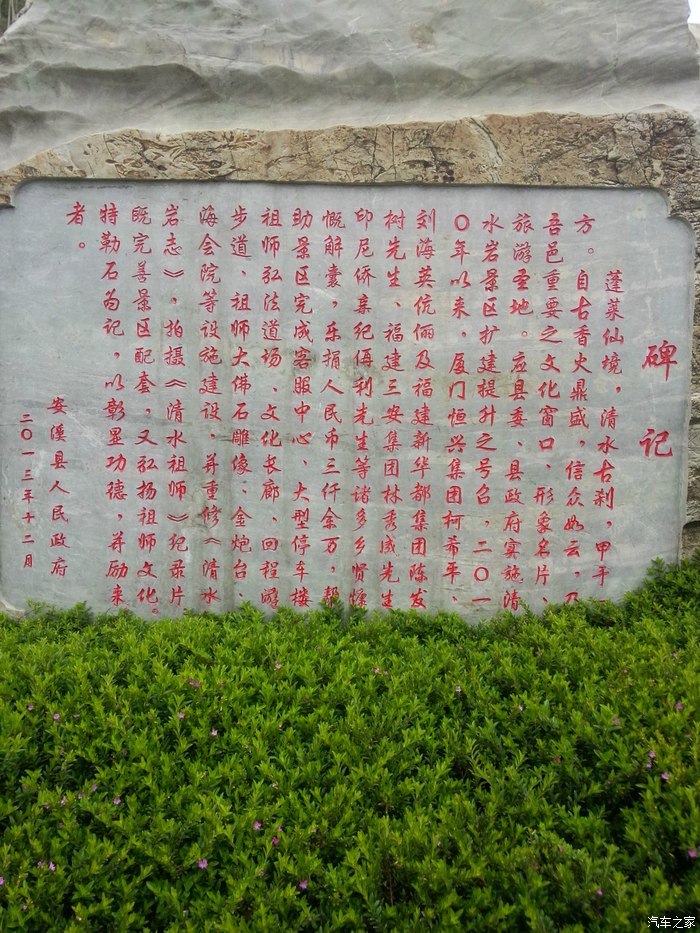 碑记
蓬莱仙境，清水古刹，甲于
方。自古香火鼎盛，信众如云，乃
吾邑重要之文化窗口、形象名片、
旅游圣地。应县委、县政府实施清
水岩景区扩建提升之号召，二〇一
〇年以来，厦门恒兴集团柯希平、
刘海英伉俪及福建新华都集团陈发
树先生、福建三安集团林秀成先生
印尼侨亲纪再利先生等诸多乡贤慷
慨解囊，乐捐人民币三仟余万，帮
助景区完成客服中心、大型停车楼
祖师弘法道场、文化长廊、回程游
步道、祖师大佛石雕像、金炮台、
海会院等设施建设，并重修《清水
岩志》，拍摄《清水祖师》纪录片
既完善景区配套，又弘扬祖师文化。
特勒石为记，以彰显功德，并励来
者。
安溪县人民政府
二〇一三年十二月
汽车之家